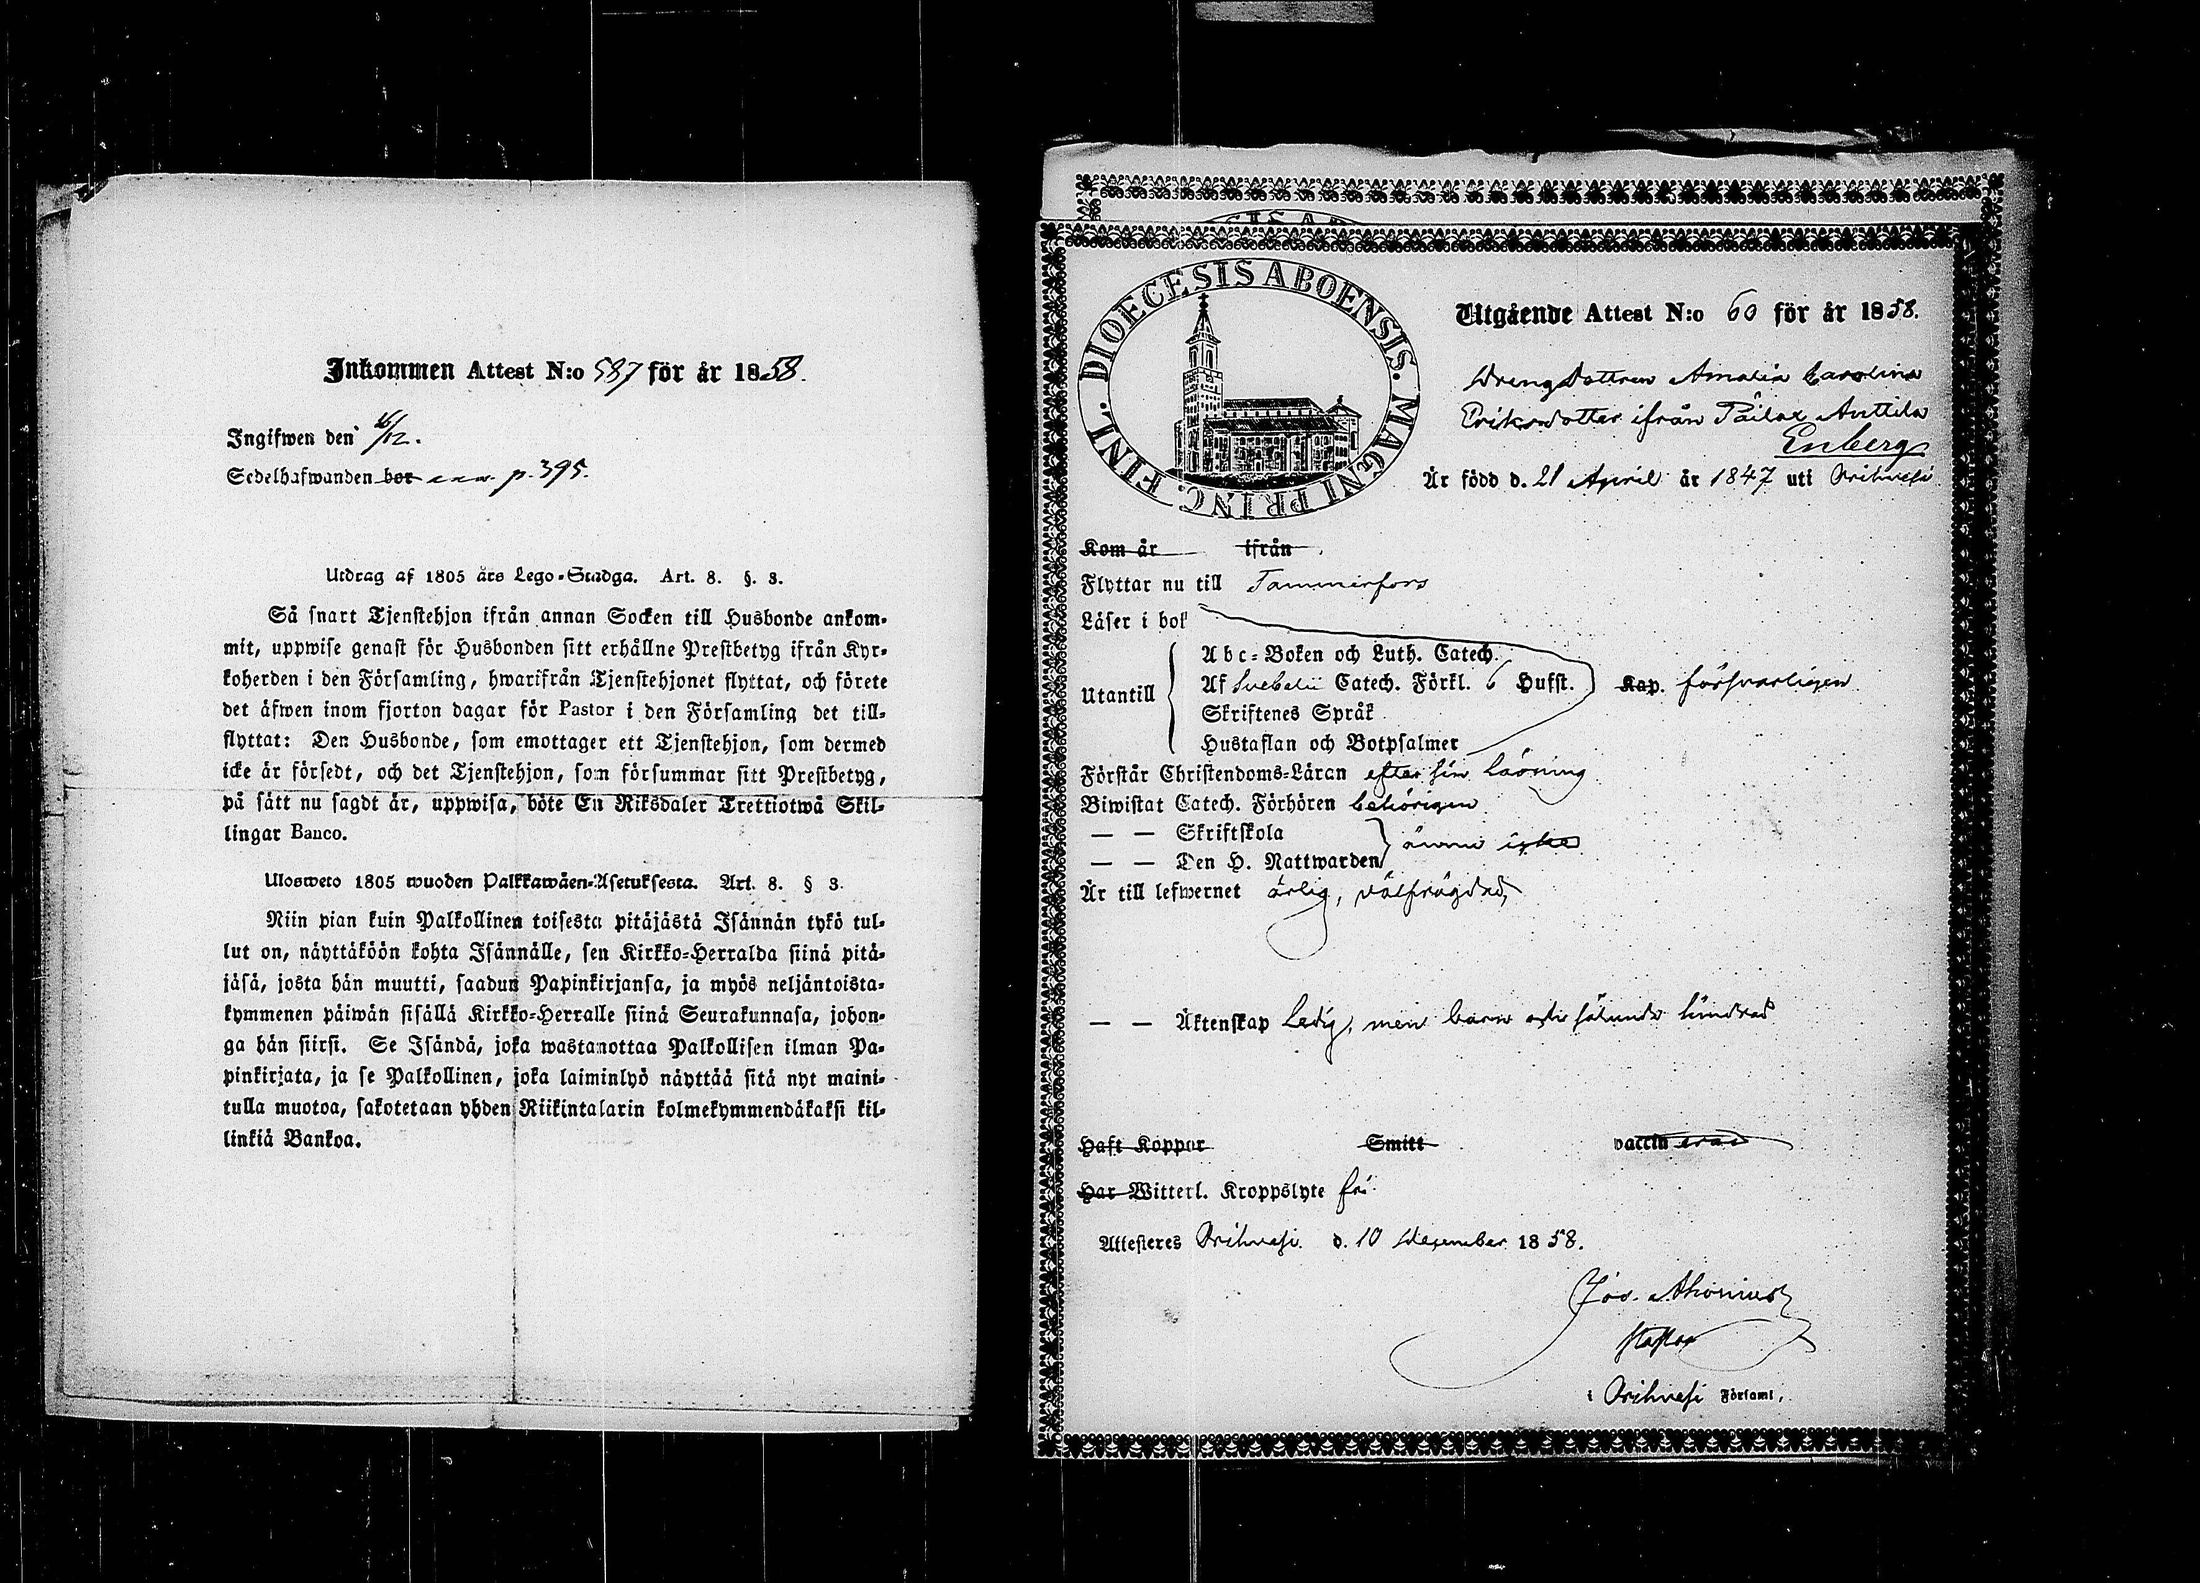 Inkommen Attest N:o 587 för år 1858.
Ingifwen den /12.
Sedelhafwanden bor p. 395.
Utdrag af 1805 års Lego-Stadga. Art. 8. §. 3.
Så snart Tjenstehjon ifrån annan Socken till Husbonde ankom-
mit, uppwise genast för Husbonden sitt erhållne Prestbetyg ifrån Kyr-
koherden i den Församling, hwarifrån Tjenstehjonet flyttat, och förete
det äfwen inom fjorton dagar för Pastor i den Församling det till-
flyttat: Den Husbonde, som emottager ett Tjenstehjon, som dermed
icke är försedt, och det Tjenstehjon, som försummar sitt Prestbetyg,
på sätt nu sagdt är, uppwisa, böte En Riksdaler Trettiotwå Skil-
lingar Banco.
Ulosweto 1805 wuoden Palkkawäen-Asetuksesta. Art. 8. § 3.
Niin pian kuin Palkollinen toisesta pitäjästä Isännän tykö tul-
lut on, näyttäköön kohta Isännälle, sen Kirkko-Herralda siinä pitä-
jäsä, josta hän muutti, saadun Papinkirjansa, ja myös neljäntoista-
kymmenen päiwän sisällä Kirkko-Herralle siinä Seurakunnasa, johon-
ga hän siirsi. Se Isändä, joka wastanottaa Palkollisen ilman Pa-
pinkirjata, ja se Palkollinen, joka laiminlyö näyttää sitä nyt maini-
tulla muotoa, sakotetaan yhden Riikintalarin kolmekymmendäkaksi kil-
linkiä Bankoa.
DIOECESIS ABOENSIS. MAGNI PRINC. FINL.
Utgående Attest N:o 60 för år 1858.
Drengdottren Amalia Carolina
Eriksdotter ifrån Päilax Anttila
Enberg
Är född d. 21 April år 1847 uti Orihvesi
Kom år ifrån
Flyttar nu till Tammerfors
Läser i bok
Utantill
Abc-Boken och Luth. Catech.
Af Svebelii Catech. Förkl. 6 Hufst. Kap. försvarligen
Skriftenes Språk
Hustaflan och Botpsalmer
Förstår Christendoms-Läran efter sin låsning
Biwistat Catech. Förhören behörigen
— — Skriftskola
ännu icke
— — Den H. Nattwarden
Är till lefwernet ärlig, välfrägdad,
— — Äktenskap Ledig, men barn
Haft Koppor Smitt vaccinerad
Har Witterl. Kroppslyte fri
Attesteres Orihvesi d. 10 December 1858.
Jos. Ahonius
Pastor
i Orihvesi Församl.